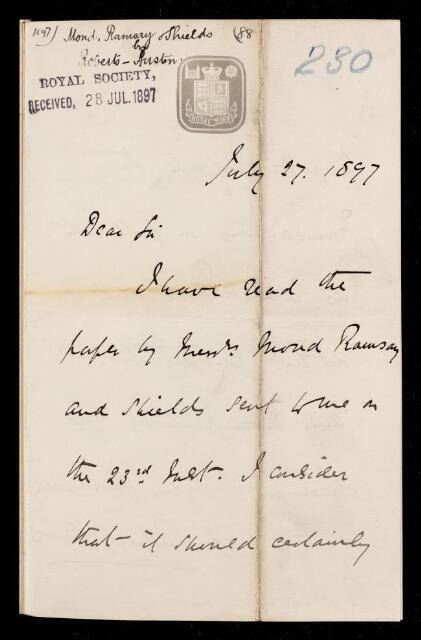 1897) Mond, Ramsay Shields (88
by
Roberts-Austen.
280
ROYAL SOCIETY,
RECEIVED, 28 JUL. 1897
ROYAL MINT
July 27. 1897
Dear Sir
I have read the
paper by Messrs. Mond Ramsay
and Shields sent to me on
the 23rd Inst. I consider
that it should certainly